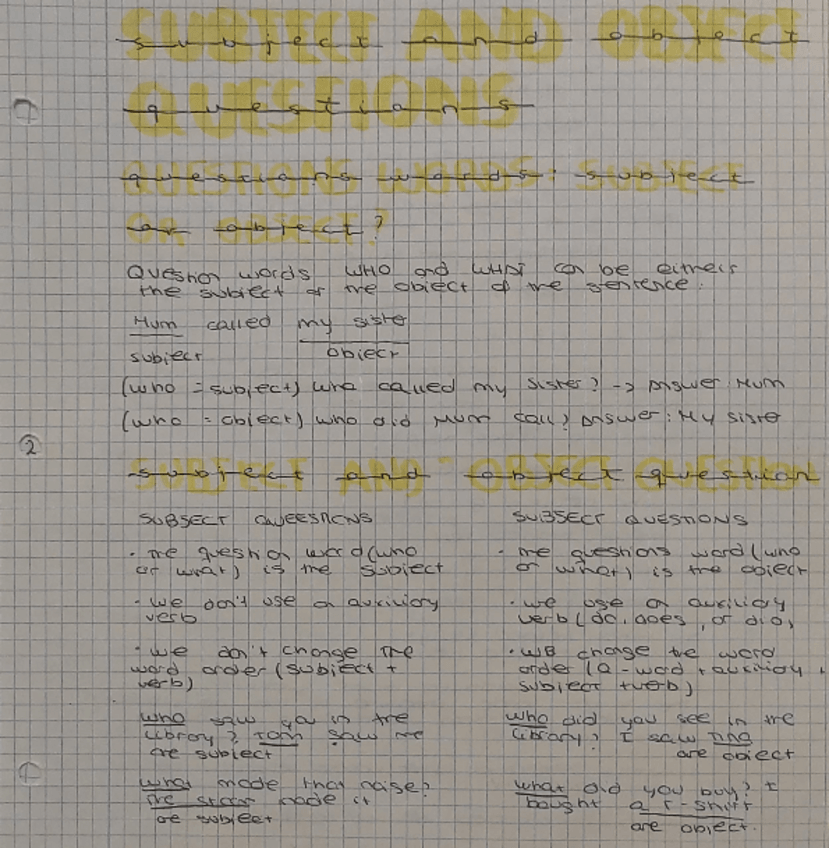 subject and object
questions
questions words: subject
or object?
Question words WHO and WHAT can be eitheis
the subject or the object of the sentence.
Mum called my sister
subject object
(who = subject) who called my sister? -> Answer Mum
(who = object) who did Mum call? Answer: My sister
2
subject and object question
SUBSECT QUEESTIONS
· The question word (who
or what) is the subject
· we don't use an auxiliary
verb
· we don't change the
word order (subject +
verb)
who saw you in the
library? Tom saw me
are subject
what made that noise?
The made it
are subject
SUBSECT QUESTIONS
· The questions word (who
or what) is the object
· we use an auxiliary
verb (do, does, or did)
· we change the word
order (Q-word + auxiliary +
subject + verb)
who did you see in the
library? I saw Tina
are object
what did you buy? I
bought a T-shirt
are object.